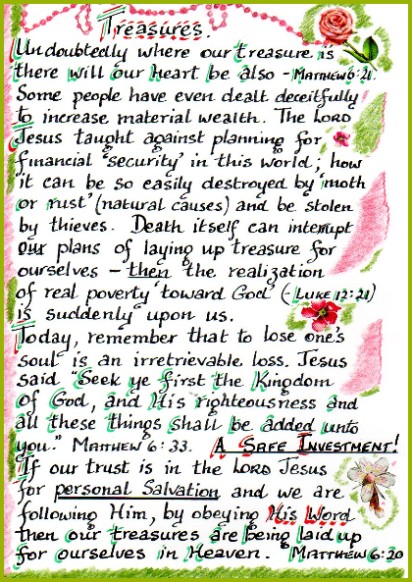 Treasures.
Undoubtedly where our treasure is
there will our Heart be also - Matthew 6:21.
Some people have even dealt deceitfully
to increase material wealth. The Lord
Jesus taught against planning for
financial 'security' in this world; how
it can be so easily destroyed by 'moth
or rust' (natural causes) and be stolen
by thieves. Death itself can interrupt
our plans of laying up treasure for
ourselves – then the realization
of real poverty 'toward God' (- Luke 12:21)
is suddenly upon us.
Today, remember that to lose one's
soul is an irretrievable loss. Jesus
said "Seek ye first the Kingdom
of God, and His righteousness and
all these things shall be added unto
you." Matthew 6:33. A Safe Investment!
If our trust is in the Lord Jesus
for personal Salvation and we are
following Him, by obeying His Word
then our treasures are being laid up
for ourselves in Heaven. Matthew 6:20